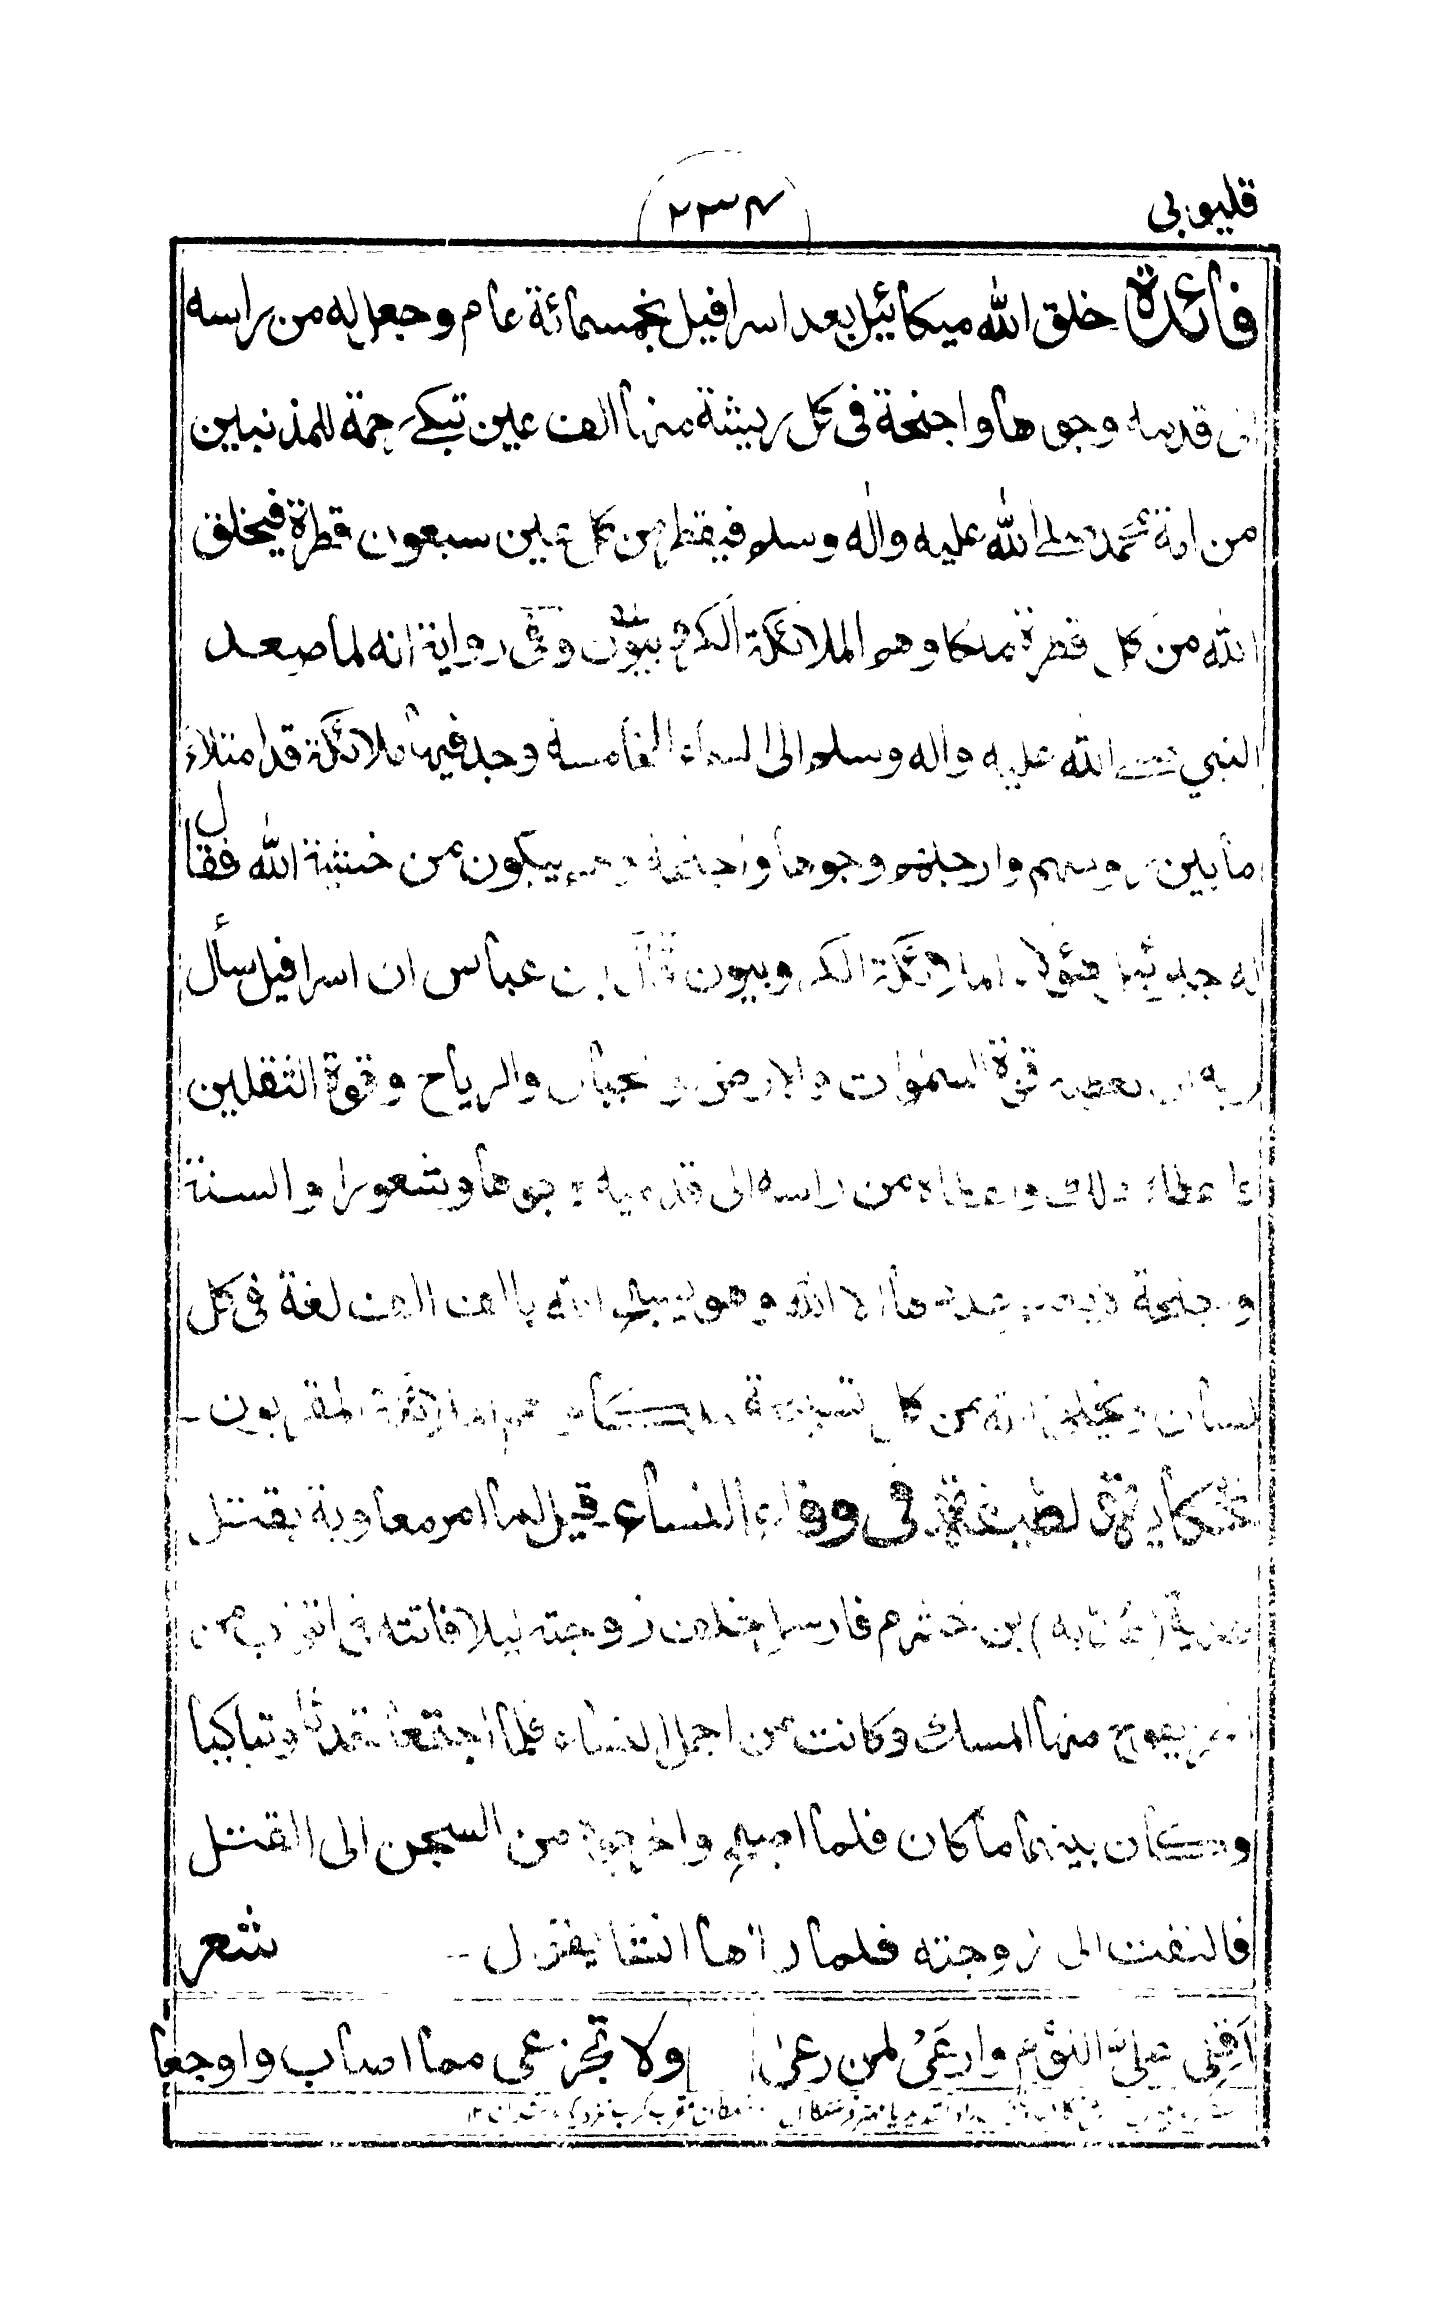 قليوبي
٢٣٤
فائدة خلق الله ميكائيل بعد اسرافيل بخمسمائة عام وجعل له من راسه
الى قدميه وجوها واجنحة فى كل ريشة منها الف عين تبكے رحمة للمذنبين
من امة محمد صلے الله عليه واله وسلم فيقطر من كل عين سبعون قطرة فيخلق
الله من كل قطرة ملكا وهم الملائكة الكروبيون وفى رواية انه لما صعد
النبي صلے الله عليه واله وسلم الى السماء الخامسة وجد فيها ملائكة قد امتلاء
ما بين روسهم وارجلهم وجوها واجنحة وهم يبكون من خشية الله فقال
له جبرئيل هؤلاء الملائكة الكروبيون قال ابن عباس ان اسرافيل سأل
ربه ان يعطيه قوة السموات والارض والجبال والرياح وقوة الثقلين
فاعطاه ذلك واعطاه من راسه الى قدميه وجوها وشعورا والسنة
واجنحة لا الله وهو يسبح الله بالف الف لغة فى كل
لسان ويخلق الله من كل تسبيحة ملكا وهم الملائكة المقربون۔
حكاية لطيفة فى وفاء النساء قيل لما امر معاوية بقتل
هدبة بن خثرم فارسل خلف زوجته ليلا فاتته فى اثواب من
يفوح منها المسك وكانت من اجمل النساء فلما اجتمعا تحدثا وتباكيا
وكان بينهما ما كان فلما اصبح واخرجوه من السجن الى القتل
فالتفت الى زوجته فلما راها انشا يقول۔ شعر
اَقِلِى عليّ النوم وارعَىْ لمن رعىٰ ولا تجزعى مما اصاب واوجعا